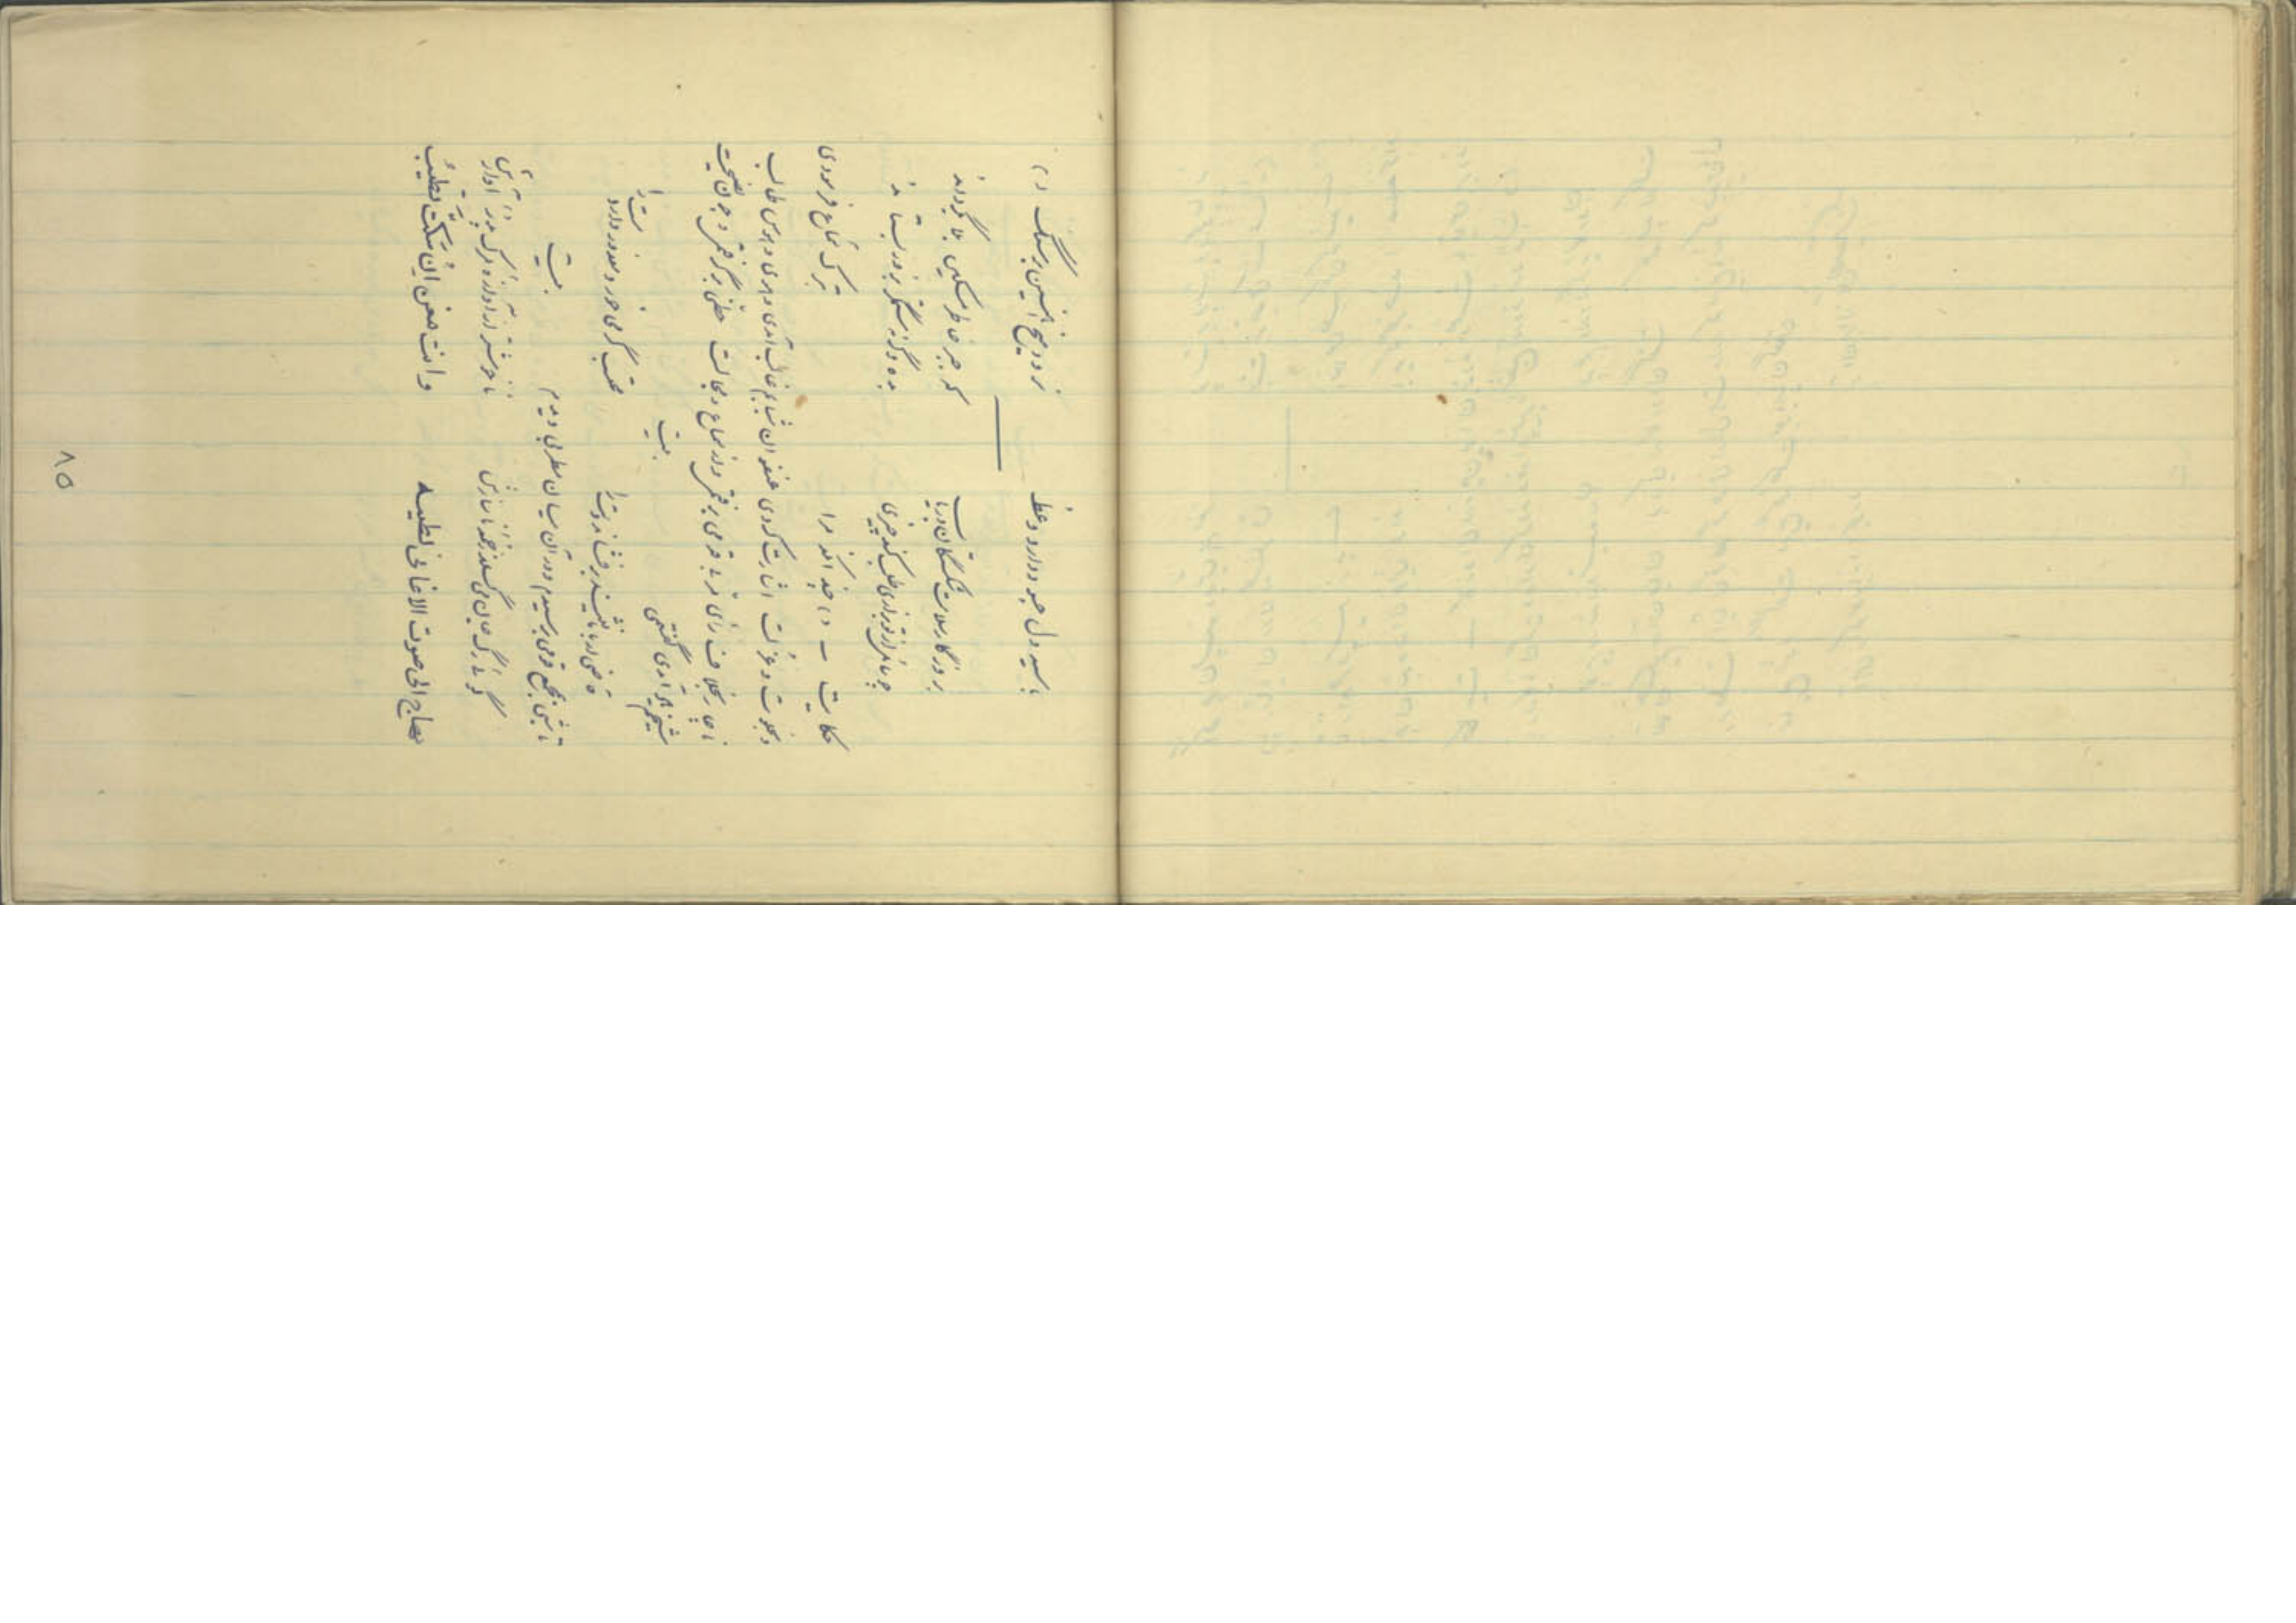 با سیه دل چه سود دارد وعظ نرود میخ آهنین بر سنگ
بروزگار سلامت شکستگان دریاب که جبر خاطر مسکین بلا بگرداند
چو سائل از تو بزاری طلب کند چیزی بده وگرنه ستمگر بزور بستاند
حکایت ـ چندانکه مرا بترک سماع فرمودی
و بخلوت و عزلت اشارت کردی عنفوان شبابم غالب آمدی و هوی و هوس طالب
ناچار بخلاف رای مربی قدمی برفتمی و از سماع و مجالست حظی برگرفتمی و چون نصیحت
شیخم یاد آمدی گفتمی بیت
قاضی ار با ما نشیند برفشاند دست را محتسب گر می خورد معذور دارد مست را
تا شبی بمجمع قومی برسیدم و در آن میان مطربی دیدم بیت
گوئی رگ جان می گسلد زخمه ناسازش ناخوشتر از آوازه مرگ پدر آوازش
نهاج الی صوت الاغانی لطیبه وانت مغن ان سکت نطیب
۸۵